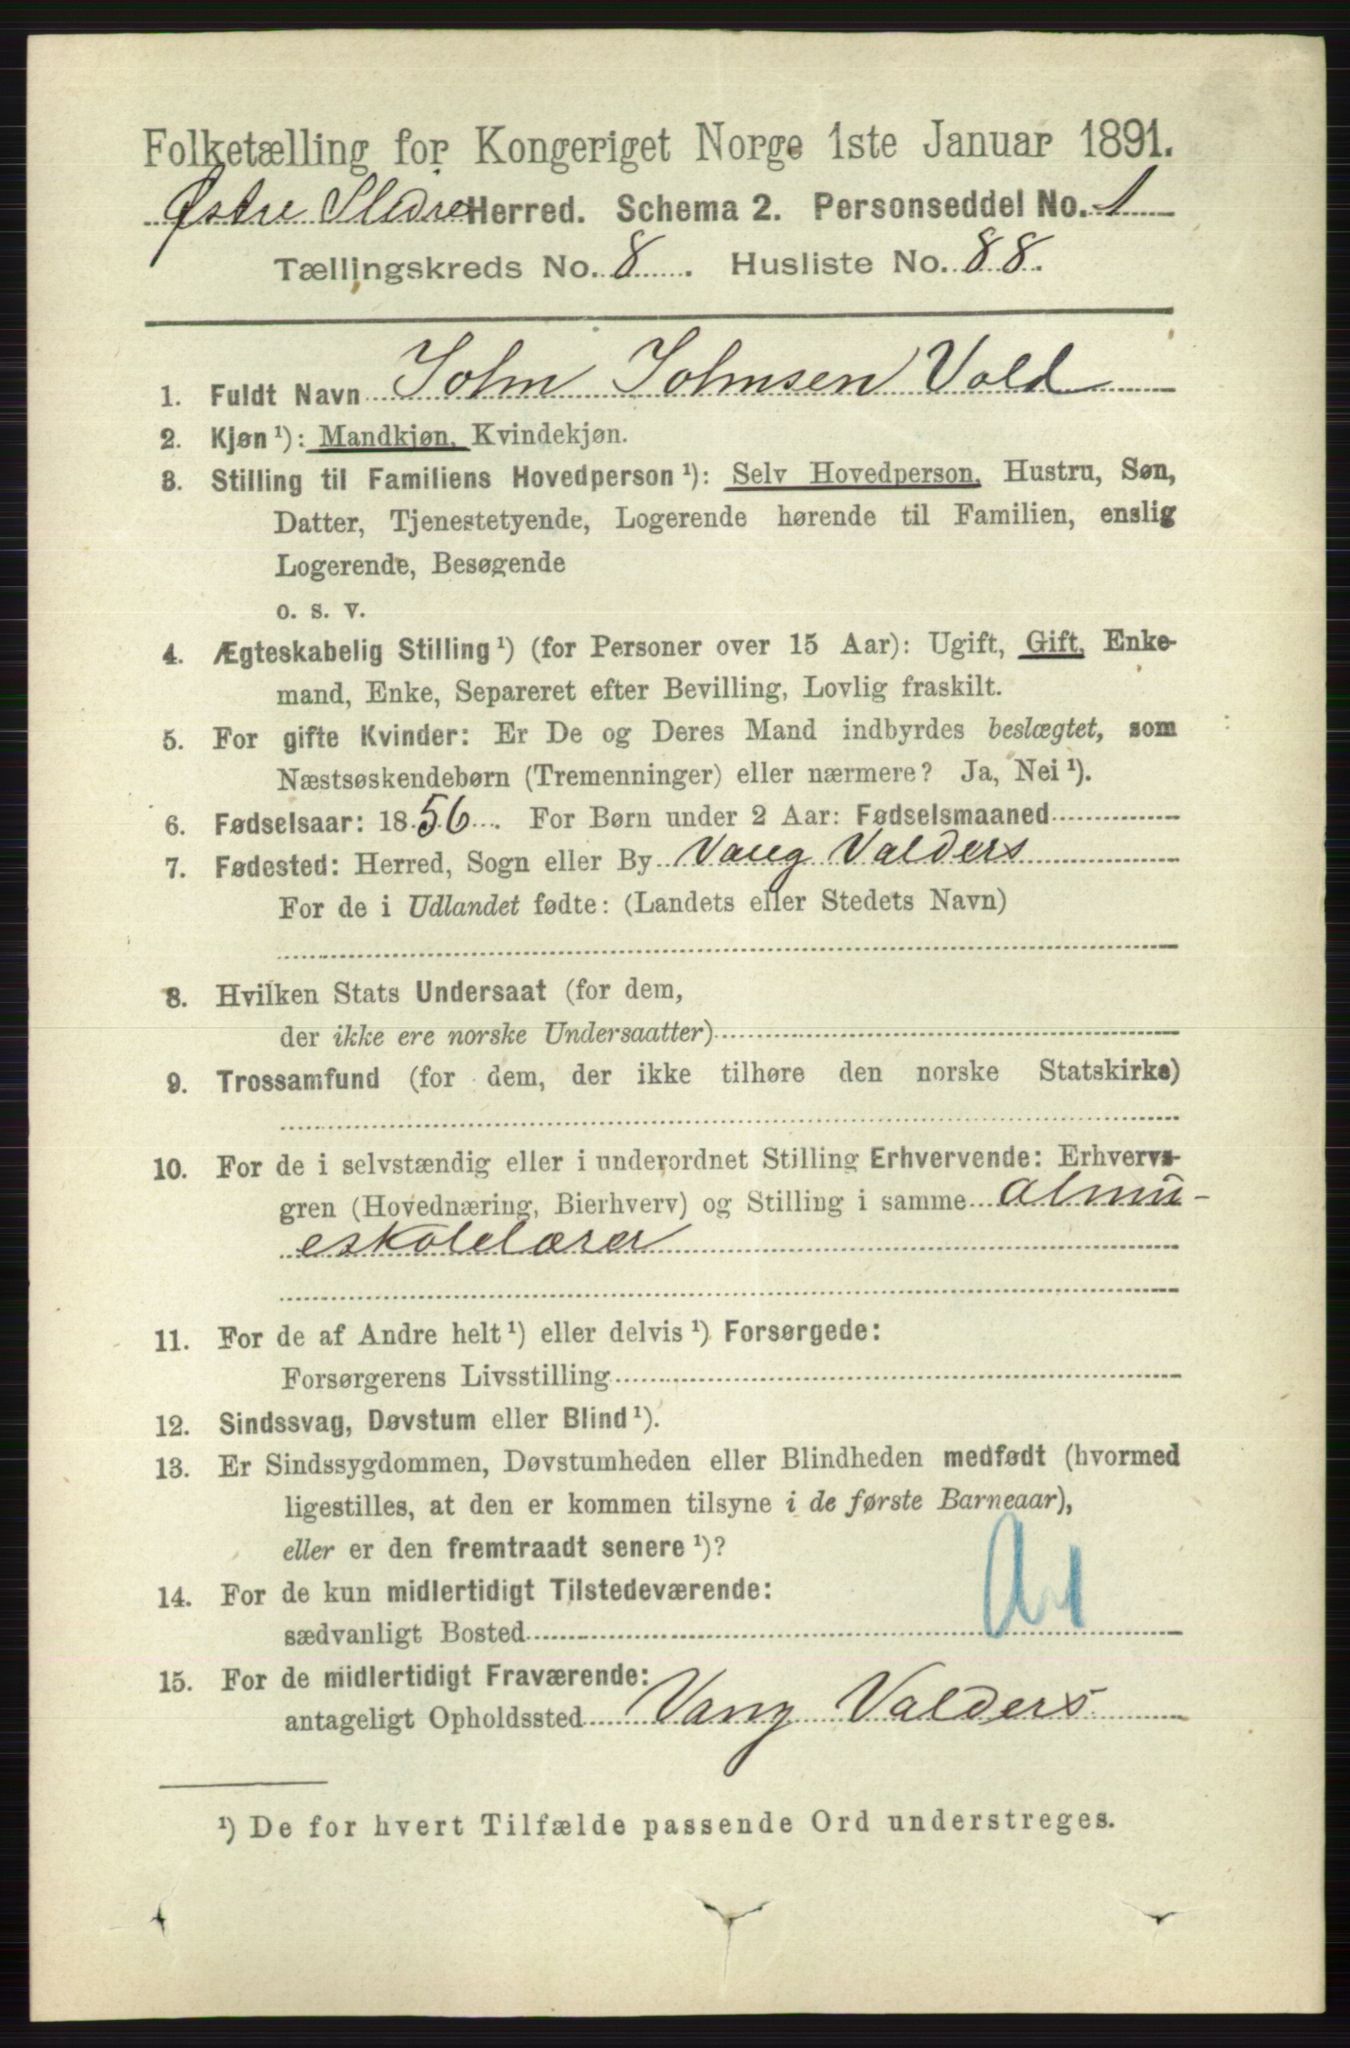 Folketælling for Kongeriget Norge 1ste Januar 1891.
Østre Slidre Herred. Schema 2. Personseddel No. 1
Tællingskreds No. 8. Husliste No. 88.
1. Fuldt Navn John Johnsen Vold
2. Kjøn ¹): Mandkjøn, Kvindekjøn.
3. Stilling til Familiens Hovedperson ¹): Selv Hovedperson, Hustru, Søn,
Datter, Tjenestetyende, Logerende hørende til Familien, enslig
Logerende, Besøgende
o. s. v.
4. Ægteskabelig Stilling ¹) (for Personer over 15 Aar): Ugift, Gift, Enke-
mand, Enke, Separeret efter Bevilling, Lovlig fraskilt.
5. For gifte Kvinder: Er De og Deres Mand indbyrdes beslægtet, som
Næstsøskendebørn (Tremenninger) eller nærmere? Ja, Nei ¹).
6. Fødselsaar: 1856. For Børn under 2 Aar: Fødselsmaaned
7. Fødested: Herred, Sogn eller By Vang Valders
For de i Udlandet fødte: (Landets eller Stedets Navn)
8. Hvilken Stats Undersaat (for dem,
der ikke ere norske Undersaatter)
9. Trossamfund (for dem, der ikke tilhøre den norske Statskirke)
10. For de i selvstændig eller i underordnet Stilling Erhvervende: Erhvervs-
gren (Hovednæring, Bierhverv) og Stilling i samme almu-
eskolelærer
11. For de af Andre helt ¹) eller delvis ¹) Forsørgede:
Forsørgerens Livsstilling
12. Sindssvag, Døvstum eller Blind ¹).
13. Er Sindssygdommen, Døvstumheden eller Blindheden medfødt (hvormed
ligestilles, at den er kommen tilsyne i de første Barneaar),
eller er den fremtraadt senere ¹)?
14. For de kun midlertidigt Tilstedeværende:
sædvanligt Bosted
15. For de midlertidigt Fraværende:
antageligt Opholdssted Vang Valders
¹) De for hvert Tilfælde passende Ord understreges.